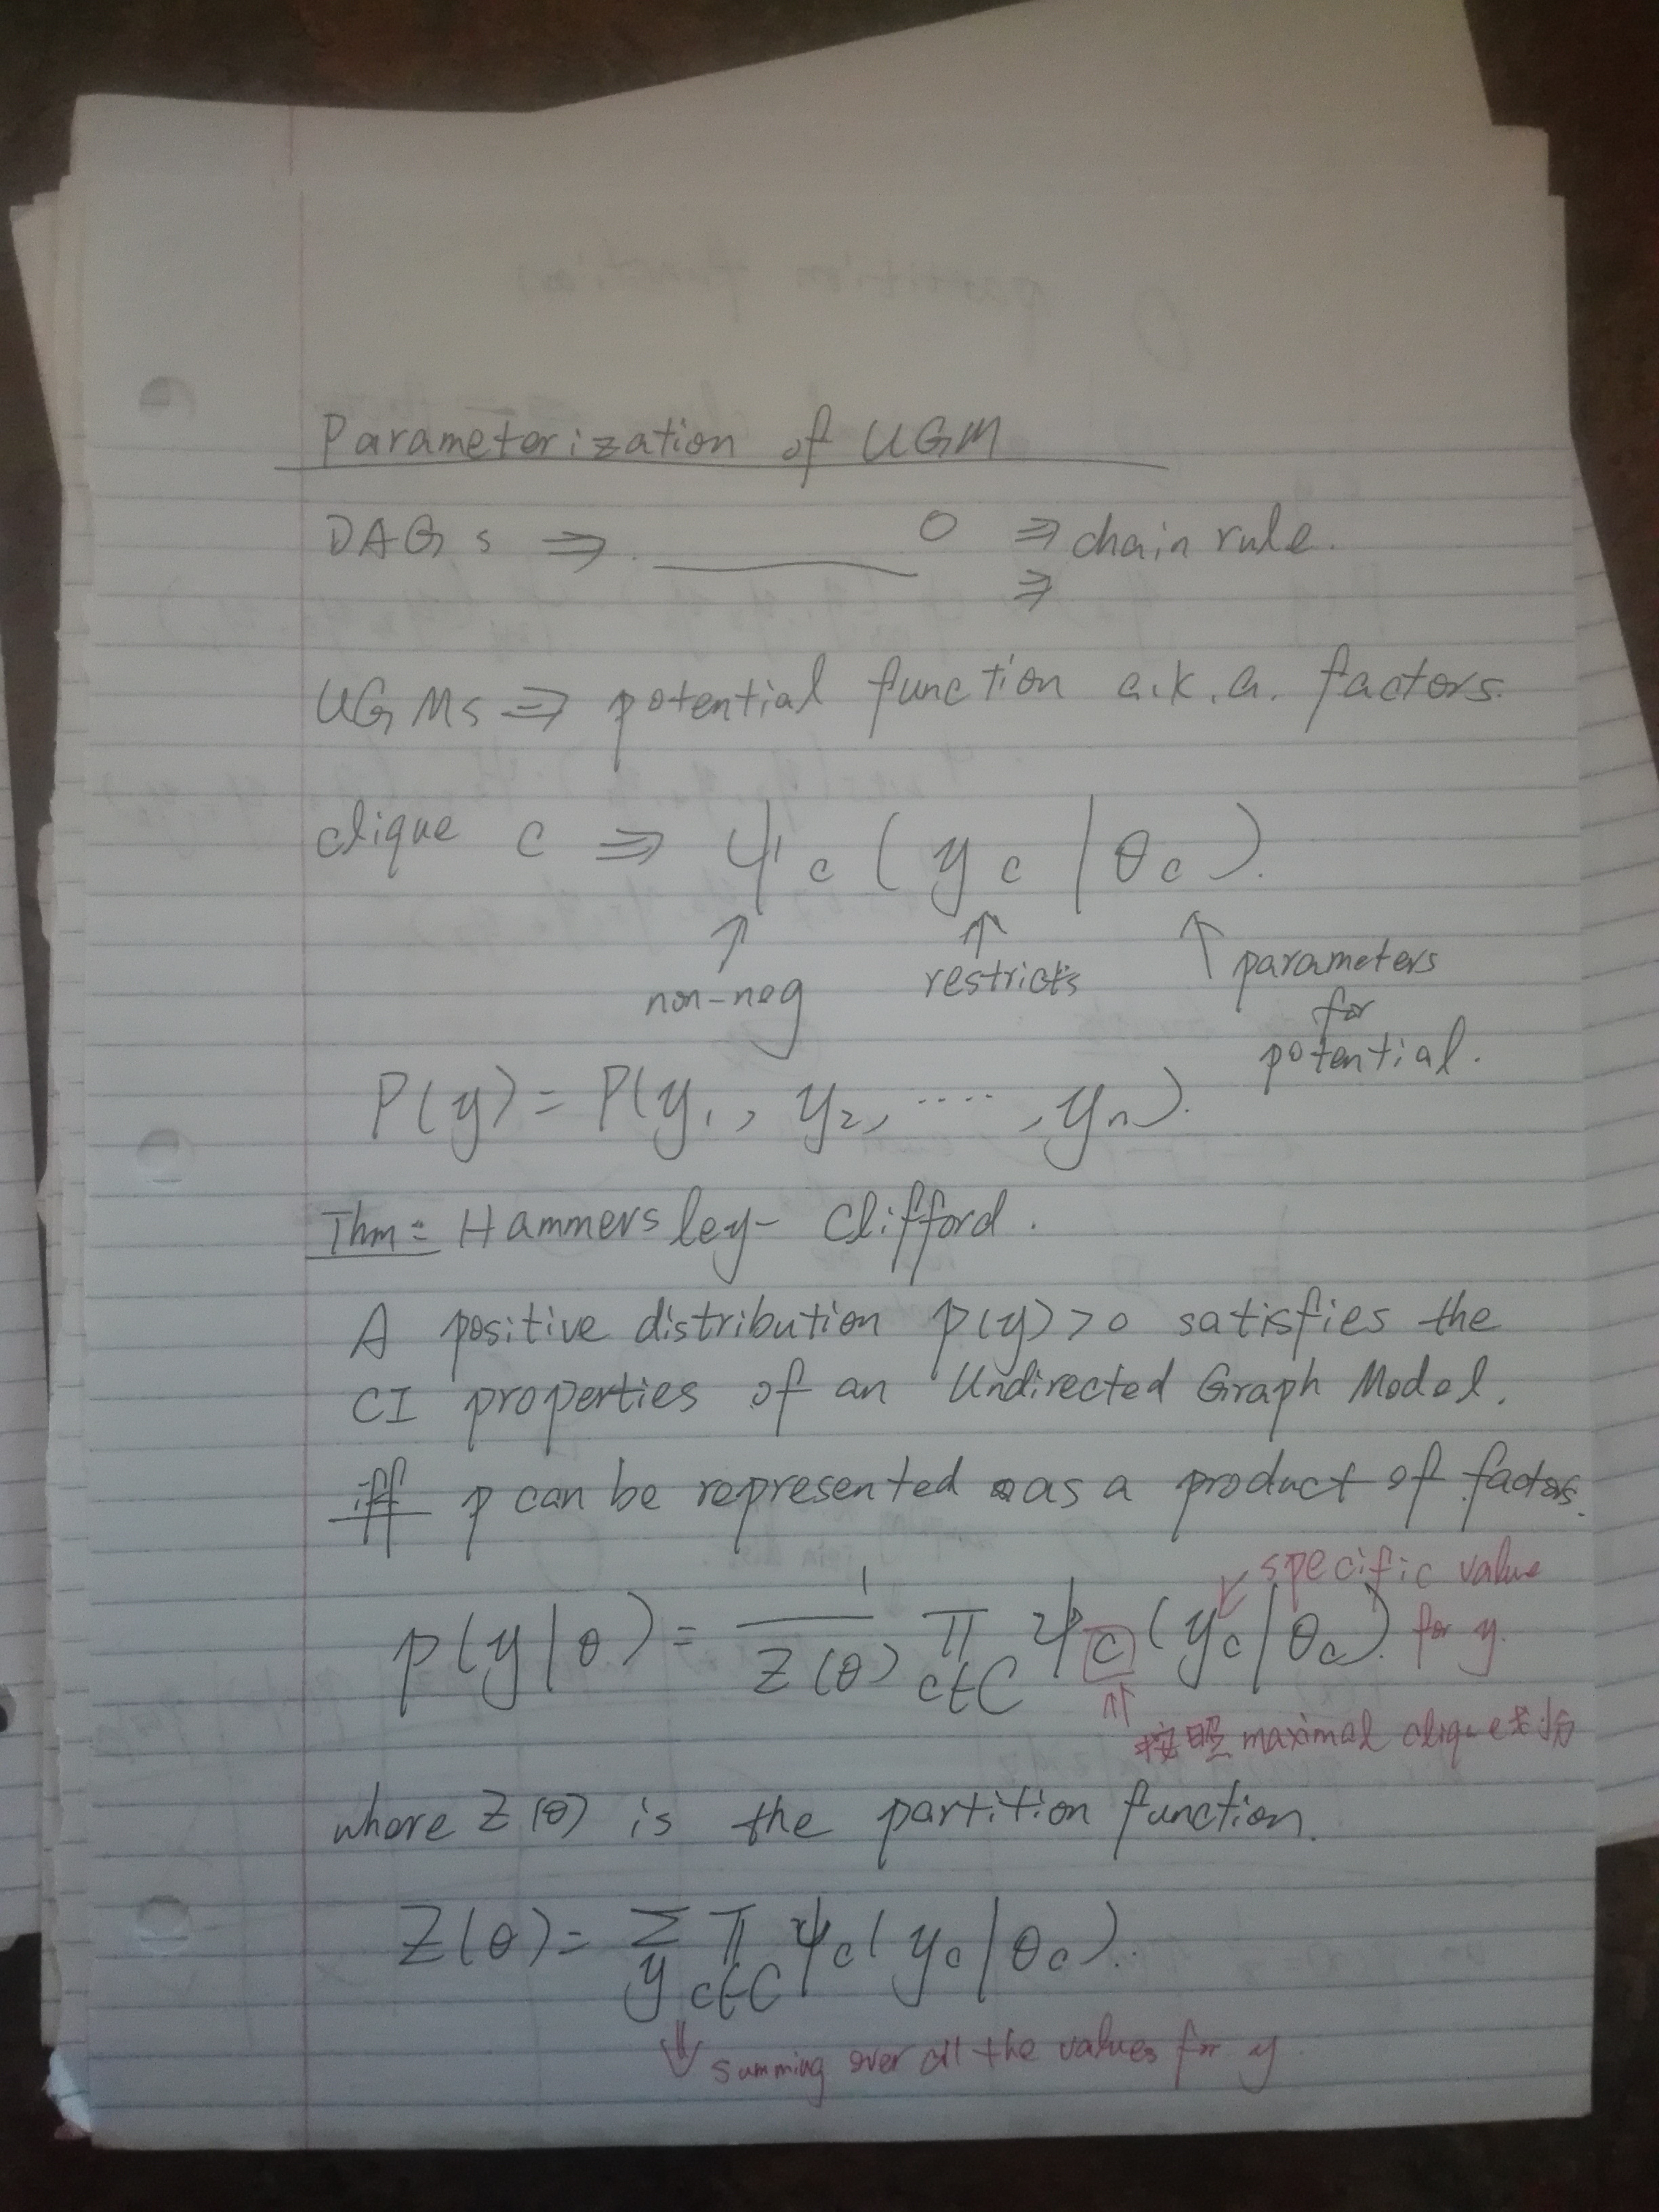 Parameterization of UGM
DAGs ⇒ ______ 0 ⇒ chain rule.
⇒
UGMs ⇒ potential function a.k.a. factors.
clique c ⇒ ψc (yc | θc).
non-neg
restricts
parameters
for
potential.
P(y) = P(y1, y2, ....., yn).
Thm: Hammersley- Clifford.
A positive distribution p(y)>0 satisfies the
CI properties of an Undirected Graph Model.
iff p can be represented as a product of factors.
specific value
for y.
p(y|θ) = 1/Z(θ) π c∈C ψc (yc|θc).
按照 maximal clique 来
where Z(θ) is the partition function.
Z(θ) = Σy π c∈C ψc(yc|θc).
summing over all the values for y.